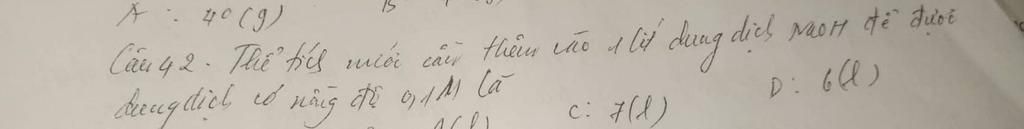 A : 40 (g) B
Câu 42. Thể tích nước cần thêm vào 1 lít dung dịch NaOH để được
dung dịch có nồng độ 0,1M là
C: 7(l) D: 6(l)